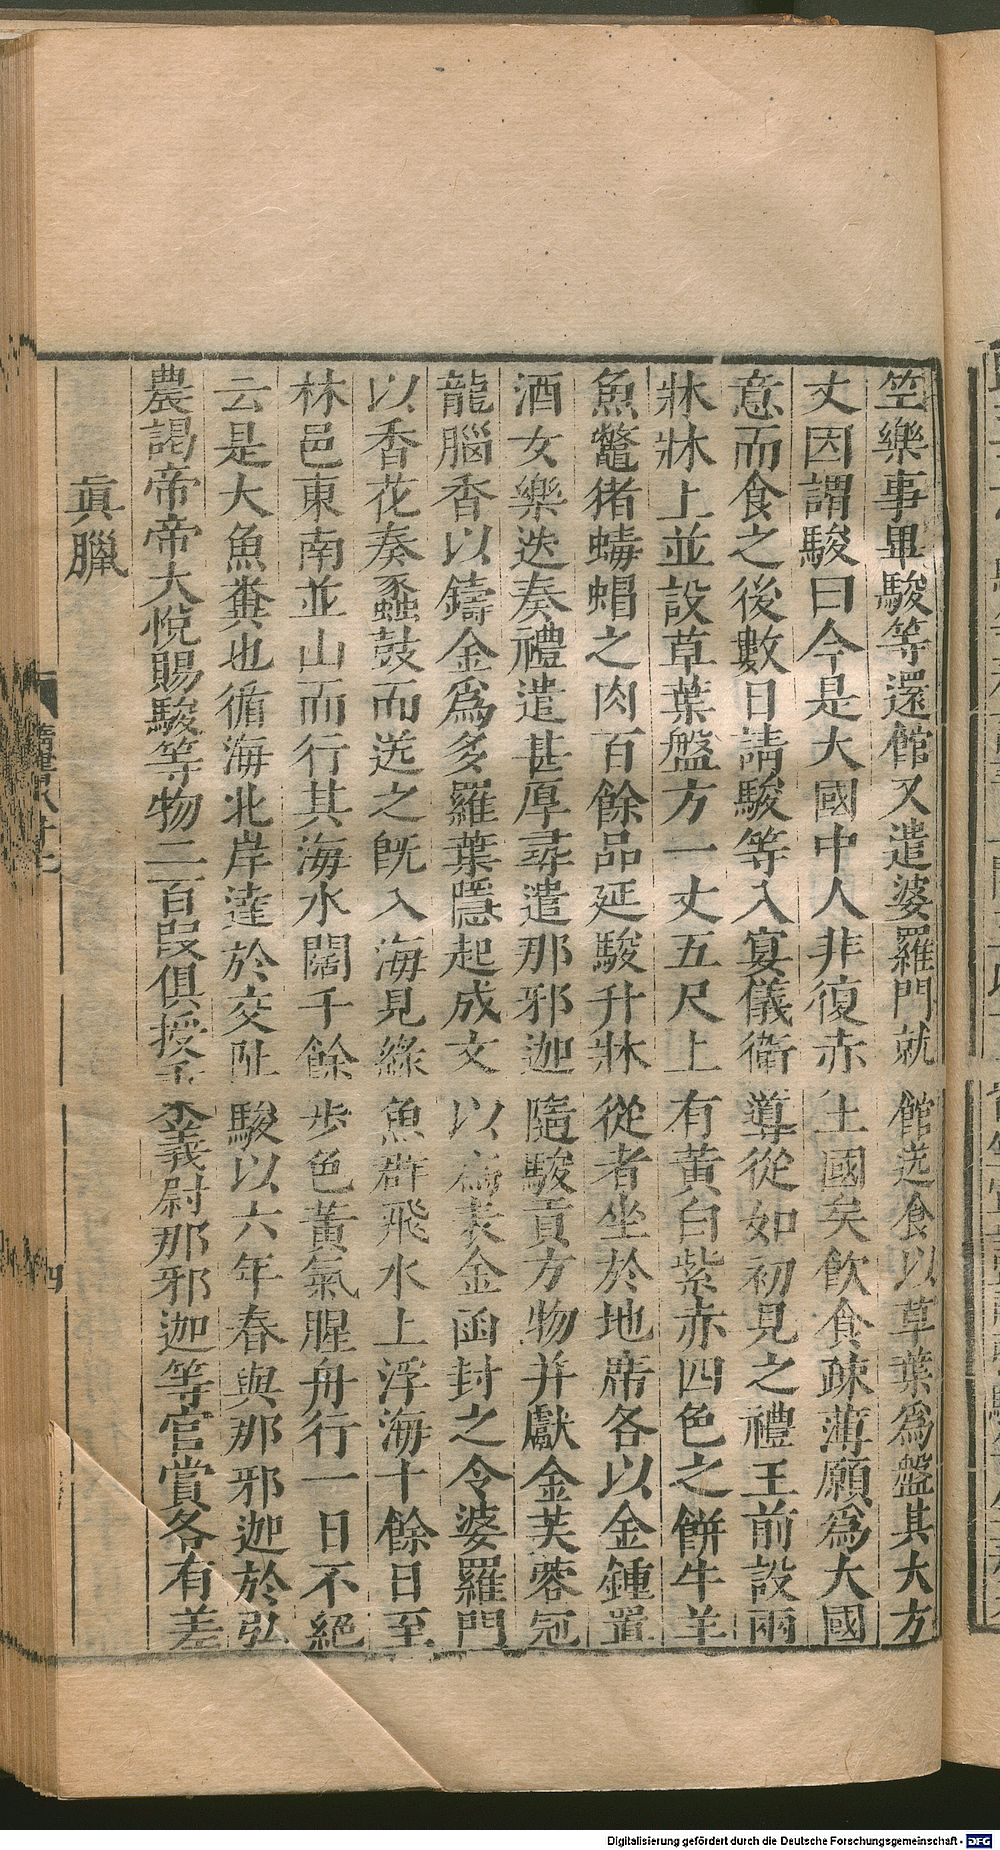 竺樂事畢駿等還館又遣婆羅門就館送食以草葉爲盤其大方
丈因謂駿曰今是大國中人非復赤土國矣飲食疎薄願爲大國
意而食之後數日請駿等入宴儀衛導從如初見之禮王前設兩
牀牀上並設草葉盤方一丈五尺上有黃白紫赤四色之餠牛羊
魚鼈猪蝳蝐之肉百餘品延駿升牀從者坐於地席各以金鍾置
酒女樂迭奏禮遣甚厚尋遣那邪迦隨駿貢方物并獻金芙蓉冠
龍腦香以鑄金爲多羅葉隱起成文以爲表金函封之令婆羅門
以香花奏蠡鼓而送之旣入海見綠魚羣飛水上浮海十餘日至
林邑東南並山而行其海水闊千餘步色黃氣腥舟行一日不絕
云是大魚糞也循海北岸達於交阯駿以六年春與那邪迦於弘
農謁帝帝大悅賜駿等物二百段俱授秉義尉那邪迦等官賞各有差
眞臘
四
Digitalisierung gefördert durch die Deutsche Forschungsgemeinschaft - DFG